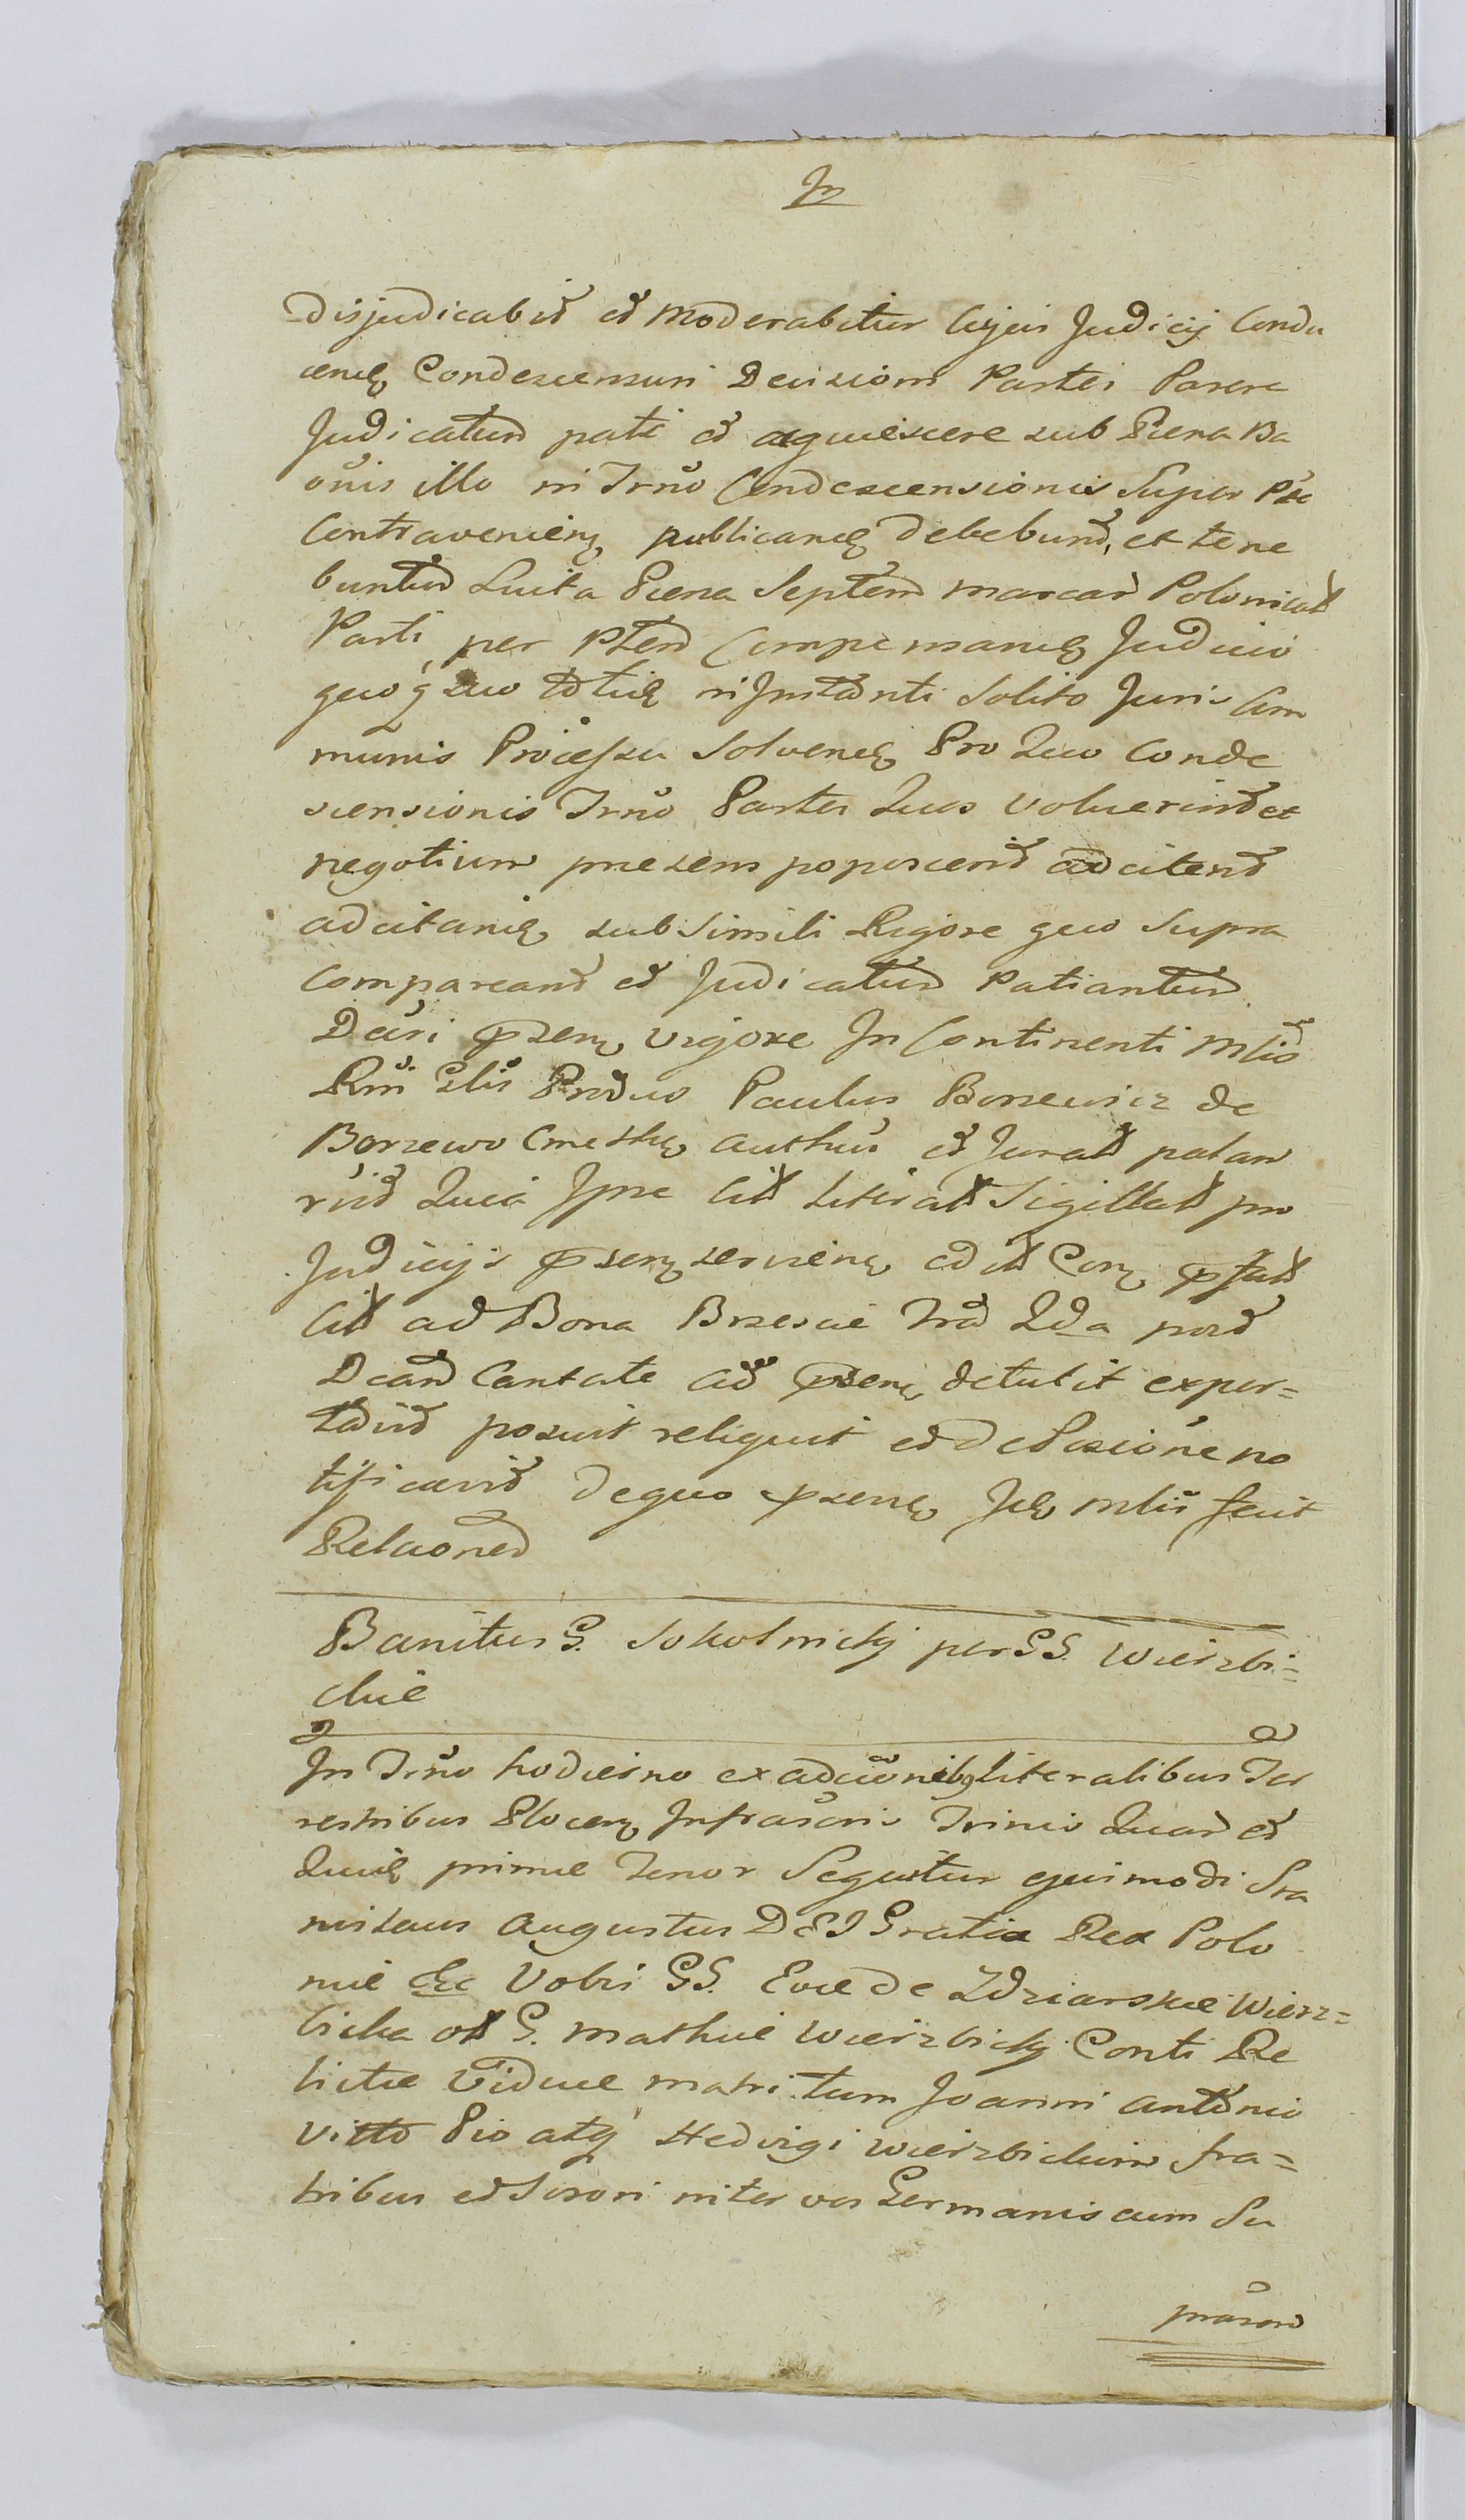 disjudicabit et Moderabitur Cujus Judicij Condu
cend Condescensuri Decisioni Partes Parere
Judicatum pati et acquiescere sub Paena Ba
onis illo in Trno Condescensionis Super Pte
Contravenien publicand debebunt, et tene
buntur Luita Paena Septem marcar Polonical
Parti per Ptem Compensand Judicio
quoq suo in Instanti Solito Juris Com
munis Processu Solvend Pro Quo Conde
scensionis Trno Partes Quos Voluerint et
negotium praesens poposcerit adcitent
adcitand sub Simili Rigore quo Supra
Compareant et Judicatum Patiantur
Dcti psen vigore In Continenti Mlis
Rni Glis Produs Paulus Borzewicz de
Borzewo authen et Jurat palam
rvit Quia Ipse Cit Literal Sigillat pro
Judicijs psen servien ad Con pfat
Cit ad Bona Brzescie Trad
Dcam Cantate ad psen detulit expor=
tavit posuit reliquit et deposicione no
tificavit de quo psens mlis fecit
Relaonem
Banitus G. Sokolnickj per GG. Wierzbi=
ckie
In Trno hodierno ex adcionibq literalibus Ter
restribus Plocen Infrascris Trinis Quar et
primae Tenor Sequitur ejusmodi Sta
nislaus Augustus DEI Gratia Rex Polo
niae &c Vobis GG. Evae de Zdziarskie Wierz=
bicka ol G. Mathiae Wierzbickj Conti Re
lictae Viduae matri tum Joanni Antonio
Vitto Pio atq Hedvigi Wierzbickim fra=
tribus et Sorori inter vos Germanis cum Su